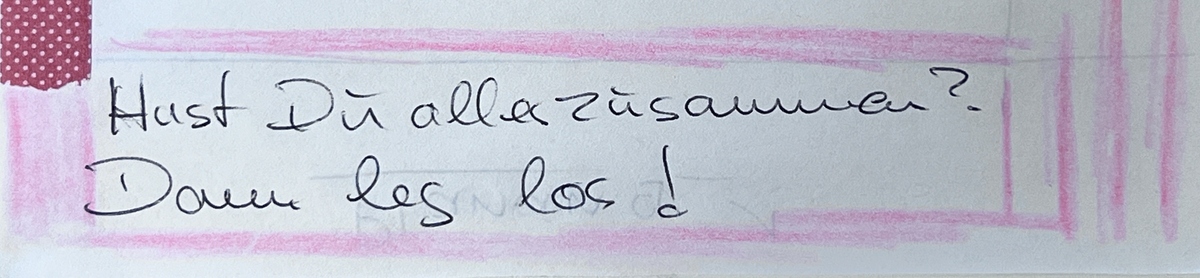 Hast Du alle zusammen?
Dann leg los!